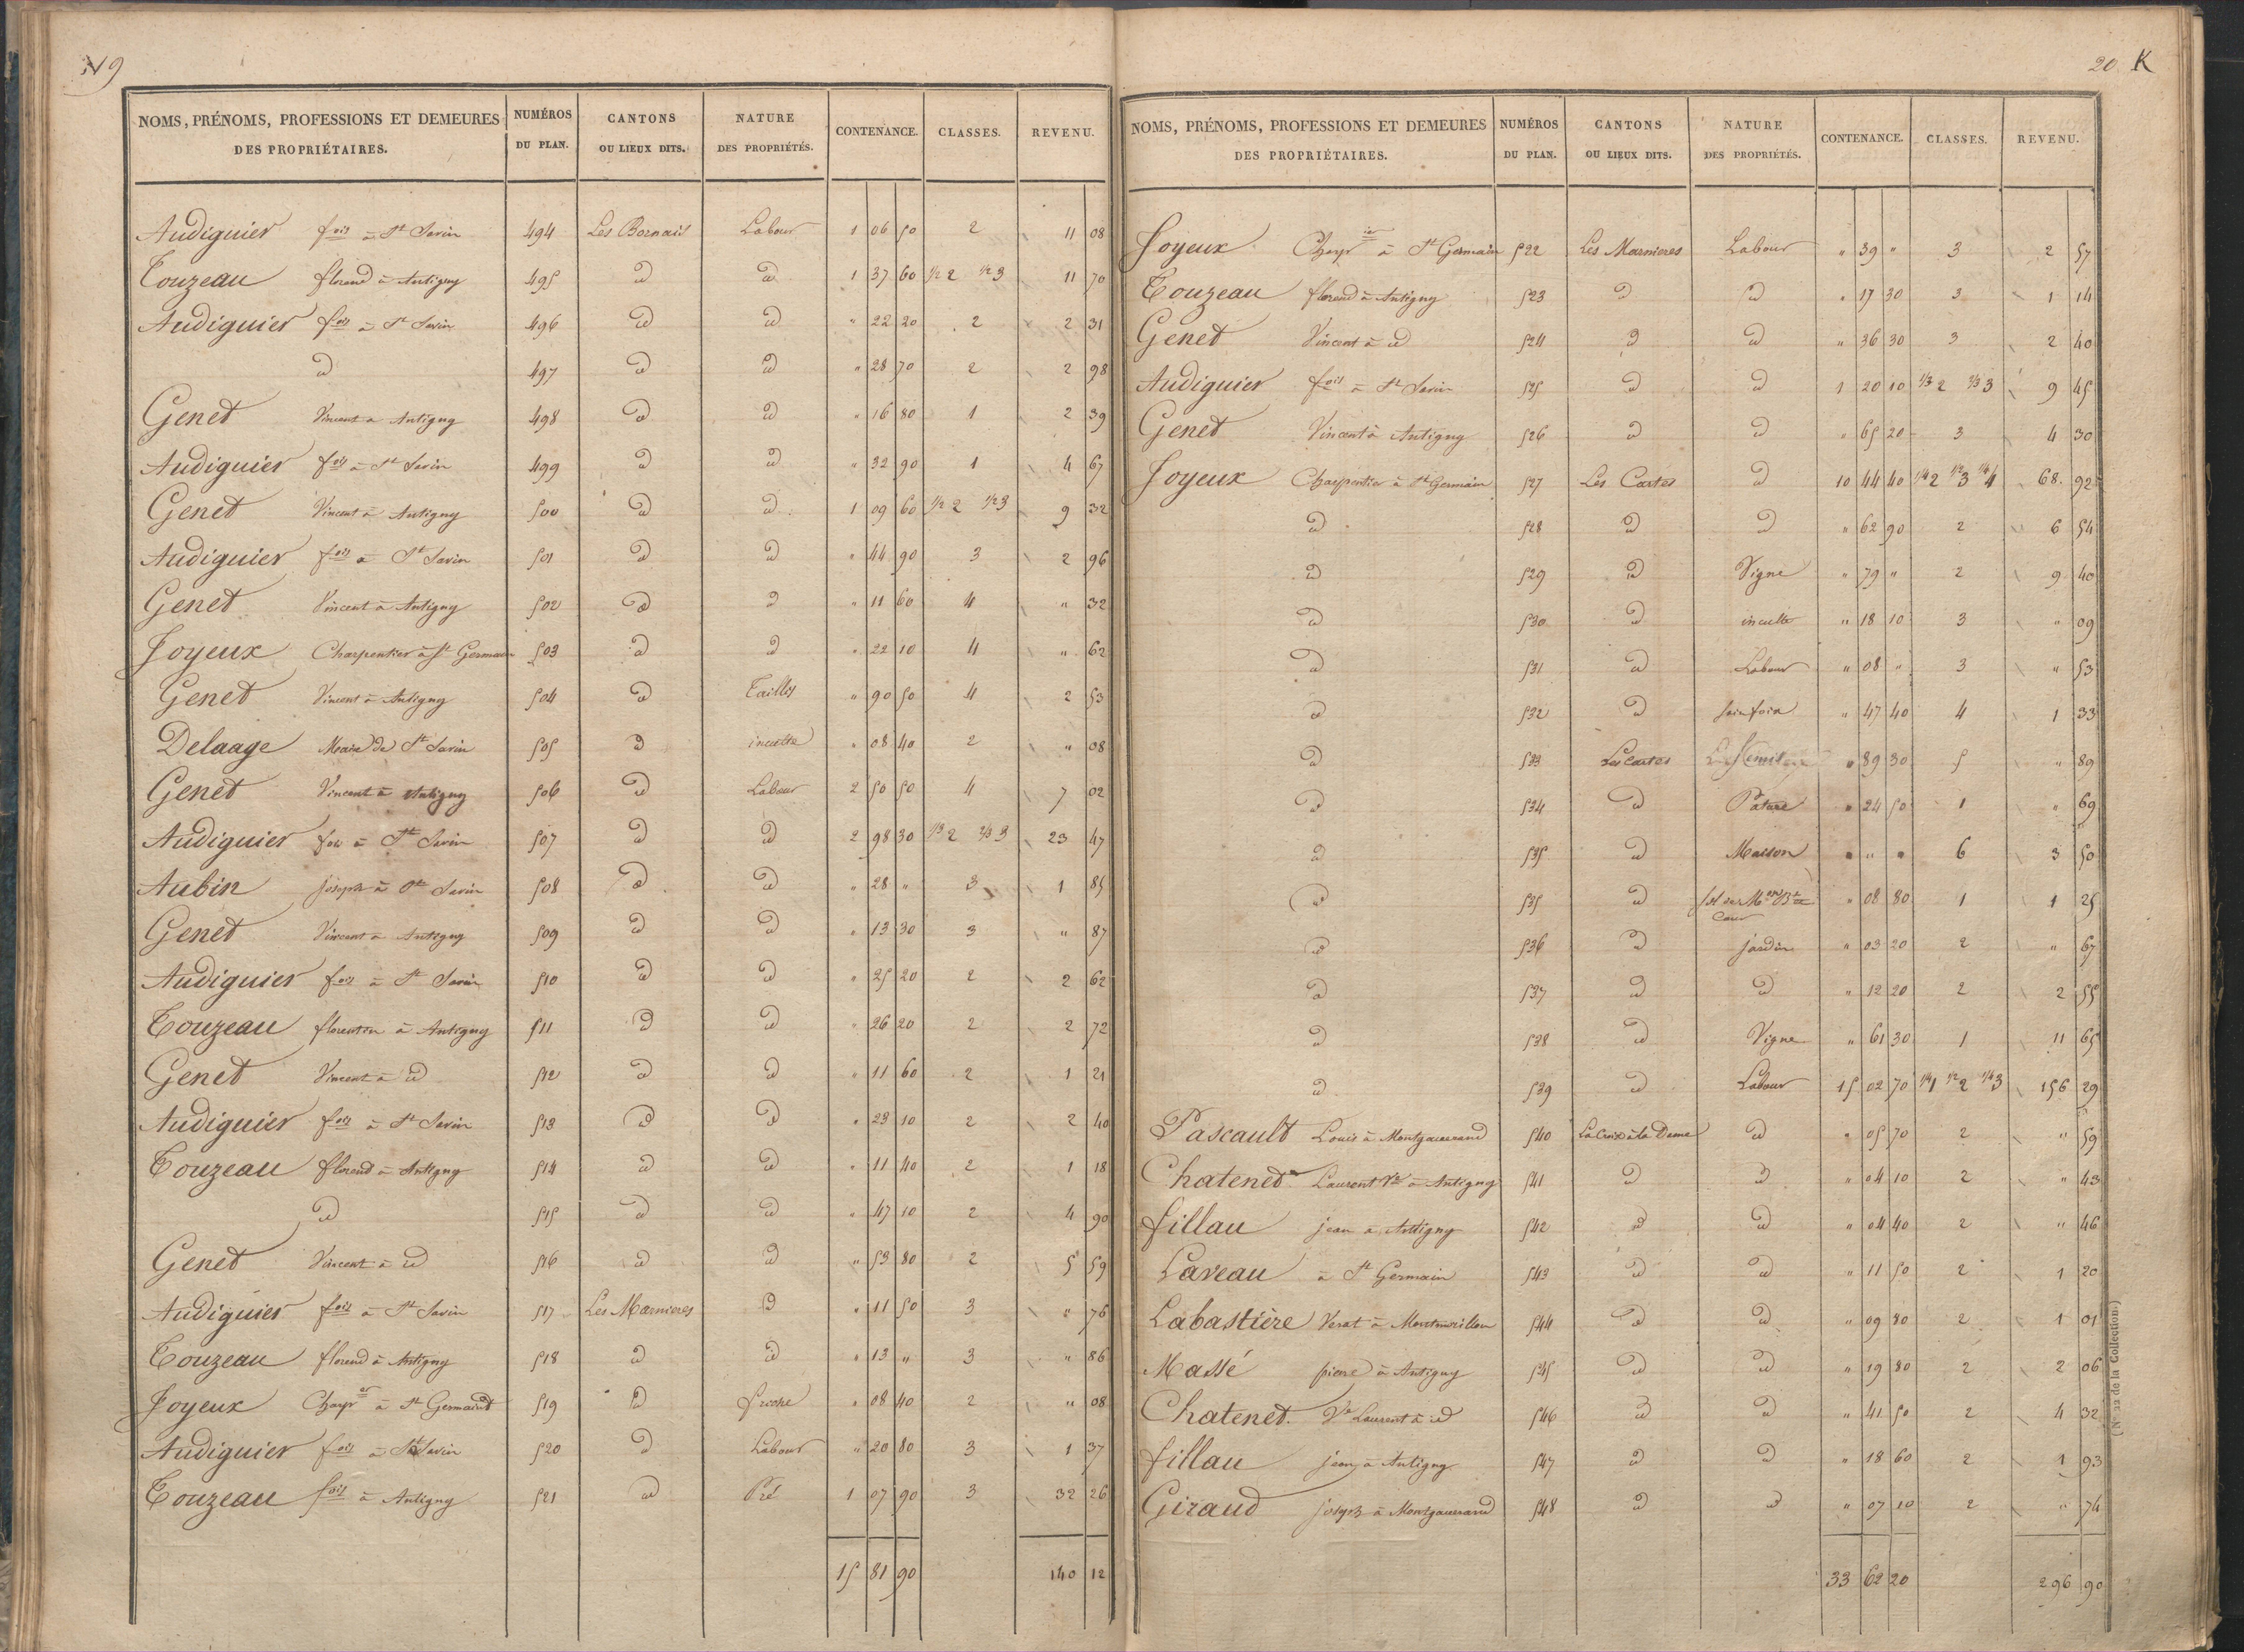 19
NOMS, PRÉNOMS, PROFESSIONS ET DEMEURES DES PROPRIÉTAIRES. NUMÉROS DU PLAN. CANTONS OU LIEUX DITS. NATURE DES PROPRIÉTÉS. CONTENANCE. CLASSES. REVENU.
Audiguier fois à St Savin 494 Les Bornais Labour 1 06 50 2 11 08
Touzeau florend à Antigny 495 id id 1 37 60 1/2 2 1/2 3 11 70
Audiguier fois à St Savin 496 id id " 22 20 2 2 31
id 497 id id " 28 70 2 2 98
Genet Vincent à Antigny 498 id id " 16 80 1 2 39
Audiguier fois à St Savin 499 id id " 32 90 1 4 67
Genet Vincent à Antigny 500 id id 1 09 60 1/2 2 1/2 3 9 32
Audiguier fois à St Savin 501 id id " 44 90 3 2 96
Genet Vincent à Antigny 502 id id " 11 60 4 " 32
Joyeux Charpentier à St Germain 503 id id " 22 10 4 " 62
Genet Vincent à Antigny 504 id Taillis " 90 50 4 2 53
Delaage Maire de St Savin 505 id inculte " 08 40 2 " 08
Genet Vincent à Antigny 506 id Labour 2 50 50 4 7 02
Audiguier fois à St Savin 507 id id 2 98 30 1/3 2 2/3 3 23 47
Aubin joseph à St Savin 508 id id " 28 " 3 1 85
Genet Vincent à Antigny 509 id id " 13 30 3 " 87
Audiguier fois à St Savin 510 id id " 25 20 2 2 62
Touzeau florentin à Antigny 511 id id " 26 20 2 2 72
Genet Vincent à id 512 id id " 11 60 2 1 21
Audiguier fois à St Savin 513 id id " 23 10 2 2 40
Touzeau florend à Antigny 514 id id " 11 40 2 1 18
id 515 id id " 47 10 2 4 90
Genet Vincent à id 516 id id " 53 80 2 5 59
Audiguier fois à St Savin 517 Les Marnieres id " 11 50 3 " 76
Touzeau florend à Antigny 518 id id " 13 " 3 " 86
Joyeux Charp er à St Germaind 519 id friche " 08 40 2 " 08
Audiguier fois à St Savin 520 id Labour " 20 80 3 1 37
Touzeau fois à Antigny 521 id Pré 1 07 90 3 32 26
15 81 90 140 12
20 K
NOMS, PRÉNOMS, PROFESSIONS ET DEMEURES DES PROPRIÉTAIRES. NUMÉROS DU PLAN. CANTONS OU LIEUX DITS. NATURE DES PROPRIÉTÉS. CONTENANCE. CLASSES. REVENU.
Joyeux Charp ier à St Germain 522 Les Marnieres Labour " 39 " 3 2 57
Touzeau florend à Antigny 523 id id " 17 30 3 1 14
Genet Vincent à id 524 id id " 36 30 3 2 40
Audiguier fois à St Savin 525 id id 1 20 10 1/3 2 2/3 3 9 45
Genet Vincent à Antigny 526 id id " 65 20 3 4 30
Joyeux Charpentier à St Germain 527 Les Cartes id 10 44 40 1/4 2 1/2 3 1/4 4 68 92
id 528 id id " 62 90 2 6 54
id 529 id Vigne " 79 " 2 9 40
id 530 id inculte " 18 10 3 " 09
id 531 id Labour " 08 " 3 " 53
id 532 id sainfoin " 47 40 4 1 33
id 533 Les Cartes " 89 30 5 " 89
id 534 id Pature " 24 50 1 " 69
id 535 id Maison " " " 6 3 50
id 535 id sol de Mon Bt cour " 08 80 1 1 25
id 536 id jardin " 03 20 2 " 67
id 537 id id " 12 20 2 2 55
id 538 id Vigne " 61 30 1 11 65
id 539 id Labour 15 02 70 1/4 1 1/2 2 1/4 3 156 29
Pascault Louis à Montgauerand 540 La Croix à la Dame id " 05 70 2 " 59
Chatenet Laurent Ve à Antigny 541 id id " 04 10 2 " 43
fillau jean à Antigny 542 id id " 04 40 2 " 46
Laveau à St Germain 543 id id " 11 50 2 1 20
Labastière Verat à Montmorillon 544 id id " 09 80 2 1 01
Massé pierre à Antigny 545 id id " 19 80 2 2 06
Chatenet Ve Laurent à id 546 id id " 41 50 2 4 32
fillau jean à Antigny 547 id id " 18 60 2 1 93
Giraud joseph à Montgauerand 548 id id " 07 10 2 " 74
33 62 20 296 90
(N° 32 de la Collection.)